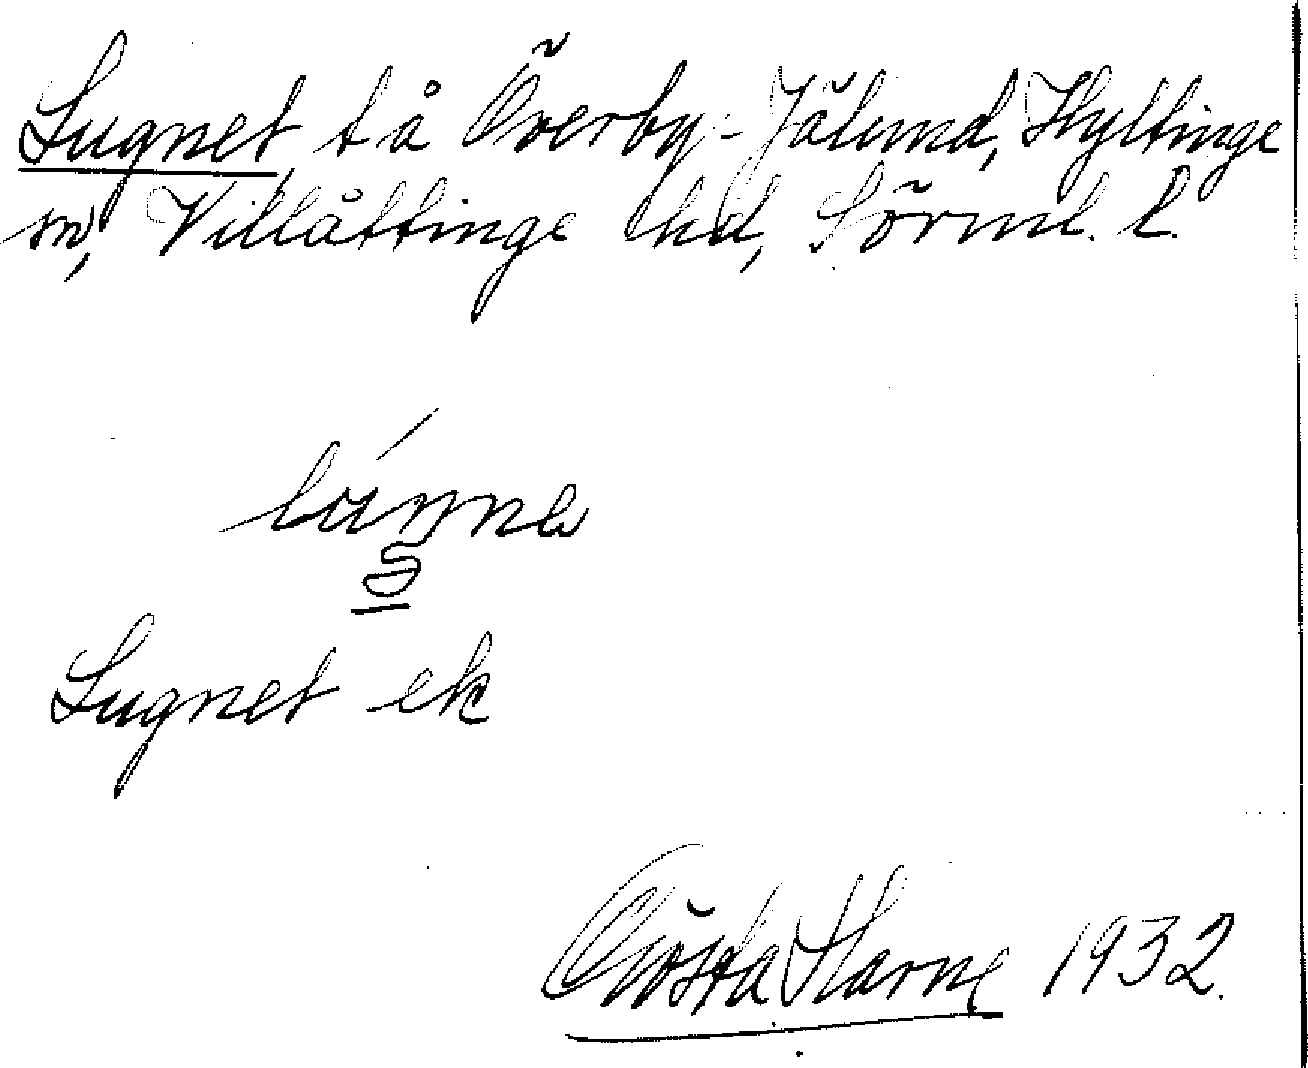 Lugnet tå Överby-Jälund, Hyltinge
sn, Villåttinge hd, Sörml. l.
Lugnet ek
Gösta Harne 1932.